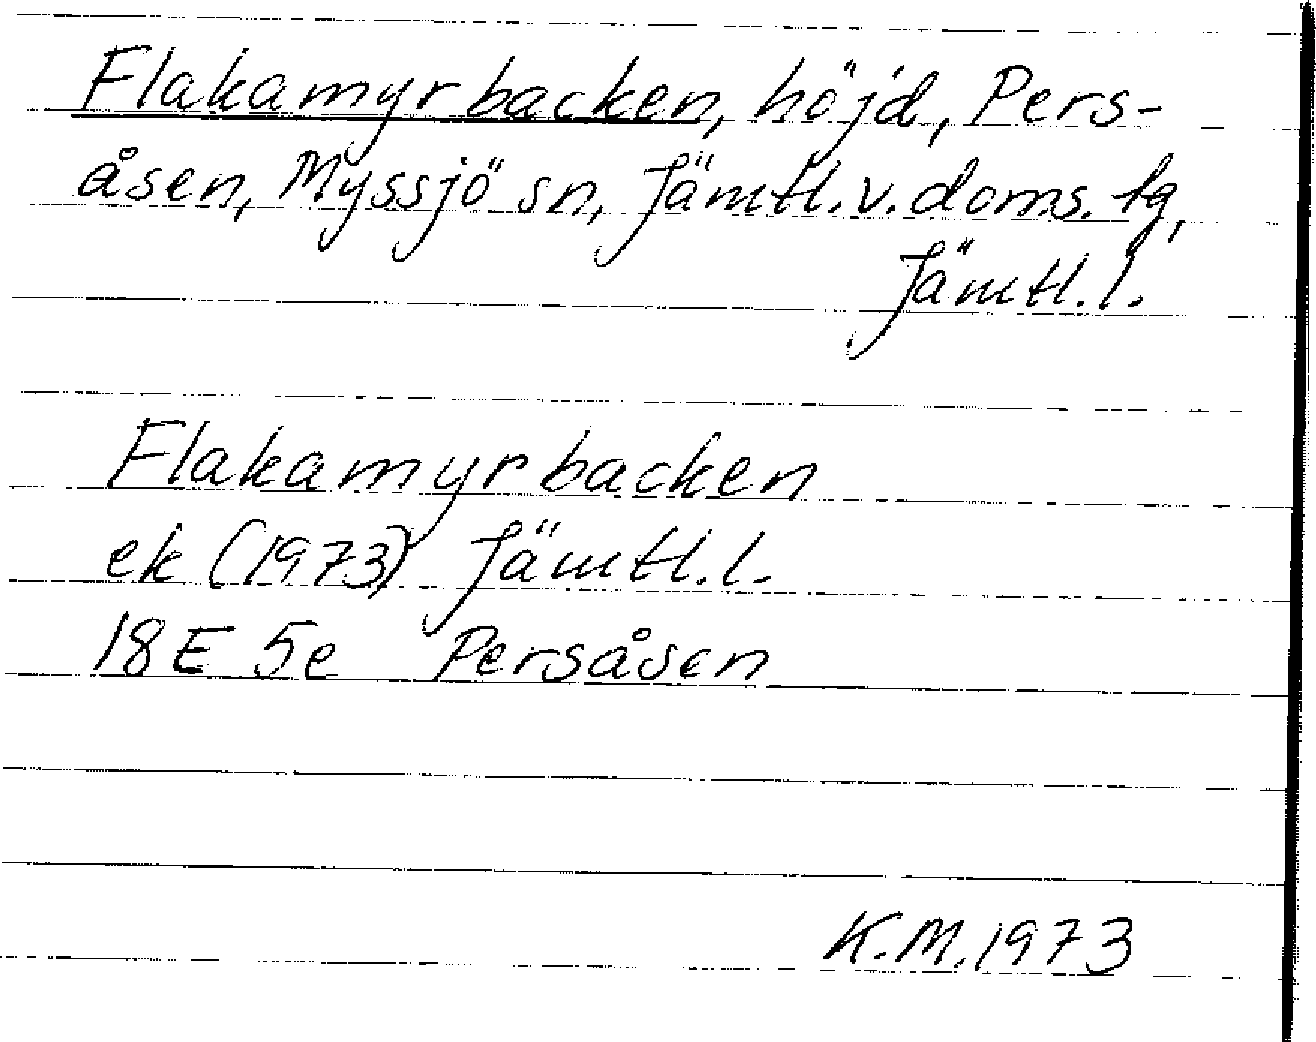 Flakamyrbacken, höjd, Pers-
åsen, Myssjö sn, Jämtl.v.doms.lg,
Jämtl.l.
Flakamyrbacken
ek (1973) Jämtl.l.
18E 5e Persåsen
K.M.1973